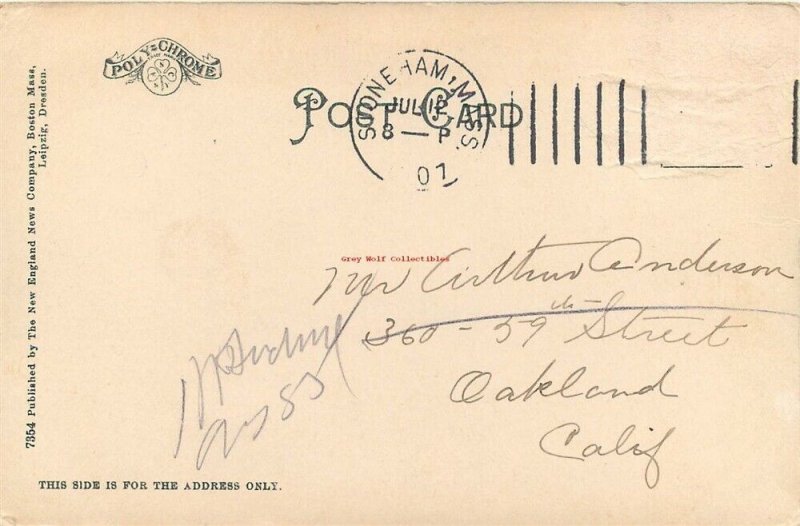 POLY-CHROME
POST CARD
STONEHAM, MASS.
JUL 12
8 — P
07
7354 Published by The New England News Company, Boston Mass,
Leipzig, Dresden.
Grey Wolf Collectibles
Mr Arthur Anderson
360 - 59th Street
Oakland
Calif
THIS SIDE IS FOR THE ADDRESS ONLY.